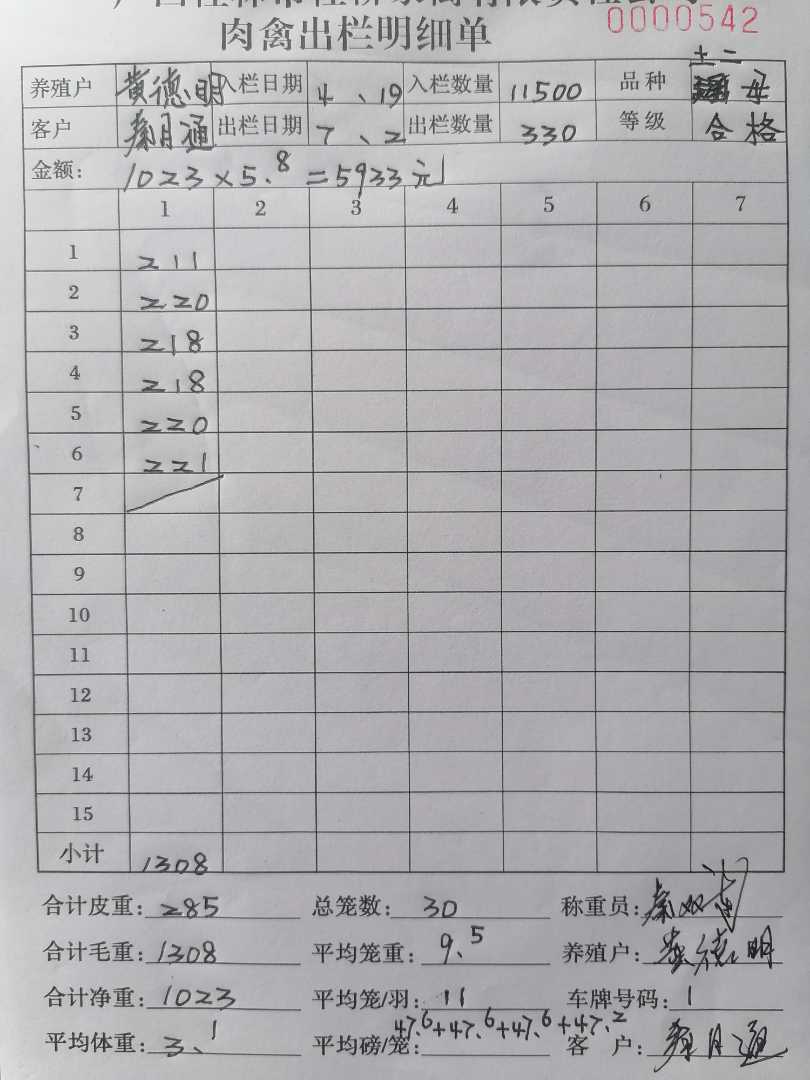 0000542
肉禽出栏明细单
土二
养殖户 黄德明 入栏日期 4、19 入栏数量 11500 品种 母
客户 秦月通 出栏日期 7、2 出栏数量 330 等级 合格
金额: 1023×5.8=5933元
1 2 3 4 5 6 7
1 211
2 220
3 218
4 218
5 220
6 221
7
8
9
10
11
12
13
14
15
小计 1308
合计皮重: 285 总笼数: 30 称重员: 秦双
合计毛重: 1308 平均笼重: 9.5 养殖户: 黄德明
合计净重: 1023 平均笼/羽: 11 车牌号码: 1
平均体重: 3、1 平均磅/笼: 47.6+47.6+47.6+47.2 客 户: 秦月通